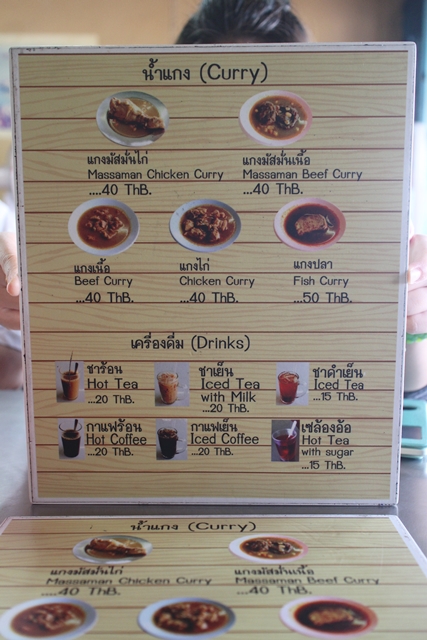 น้ำแกง (Curry)
แกงมัสมั่นไก่ แกงมัสมั่นเนื้อ
Massaman Chicken Curry Massaman Beef Curry
....40 THB. ...40 THB.
แกงเนื้อ แกงไก่ แกงปลา
Beef Curry Chicken Curry Fish Curry
...40 THB. ...40 THB. ...50 THB.
เครื่องดื่ม (Drinks)
ชาร้อน ชาเย็น ชาดำเย็น
Hot Tea Iced Tea Iced Tea
...20 THB. with Milk ...15 THB.
...20 THB.
กาแฟร้อน กาแฟเย็น เซล้องอ้อ
Hot Coffee Iced Coffee Hot Tea
...20 THB. ...20 THB. with sugar
...15 THB.
น้ำแกง (Curry)
แกงมัสมั่นไก่ แกงมัสมั่นเนื้อ
Massaman Chicken Curry Massaman Beef Curry
....40 THB. ...40 THB.